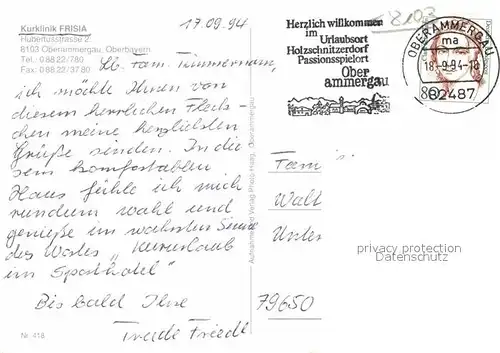 Kurklinik FRISIA
Hubertusstrasse 2
8103 Oberammergau, Oberbayern
Tel.: 0 88 22/780
Fax: 0 88 22/37 80
17.09.94
Lb. Fam. Timmermann,
ich möchte Ihnen von
diesem herrlichen Fleck-
chen meine herzlichsten
Grüße senden. In die
sem komfortablen
Haus fühle ich mich
rundum wohl und
genieße im wahrsten Sinne
des Wortes "Kururlaub
im Sporthotel"
Bis bald Ihre
Friedl
Nr. 418
8103
Herzlich willkommen
im
Urlaubsort
Holzschnitzerdorf
Passionsspielort
Ober
ammergau
OBERAMMERGAU
ma
18.-9.94-18
82487
80
Fam
Walt
Unter
79650
privacy protection
Datenschutz